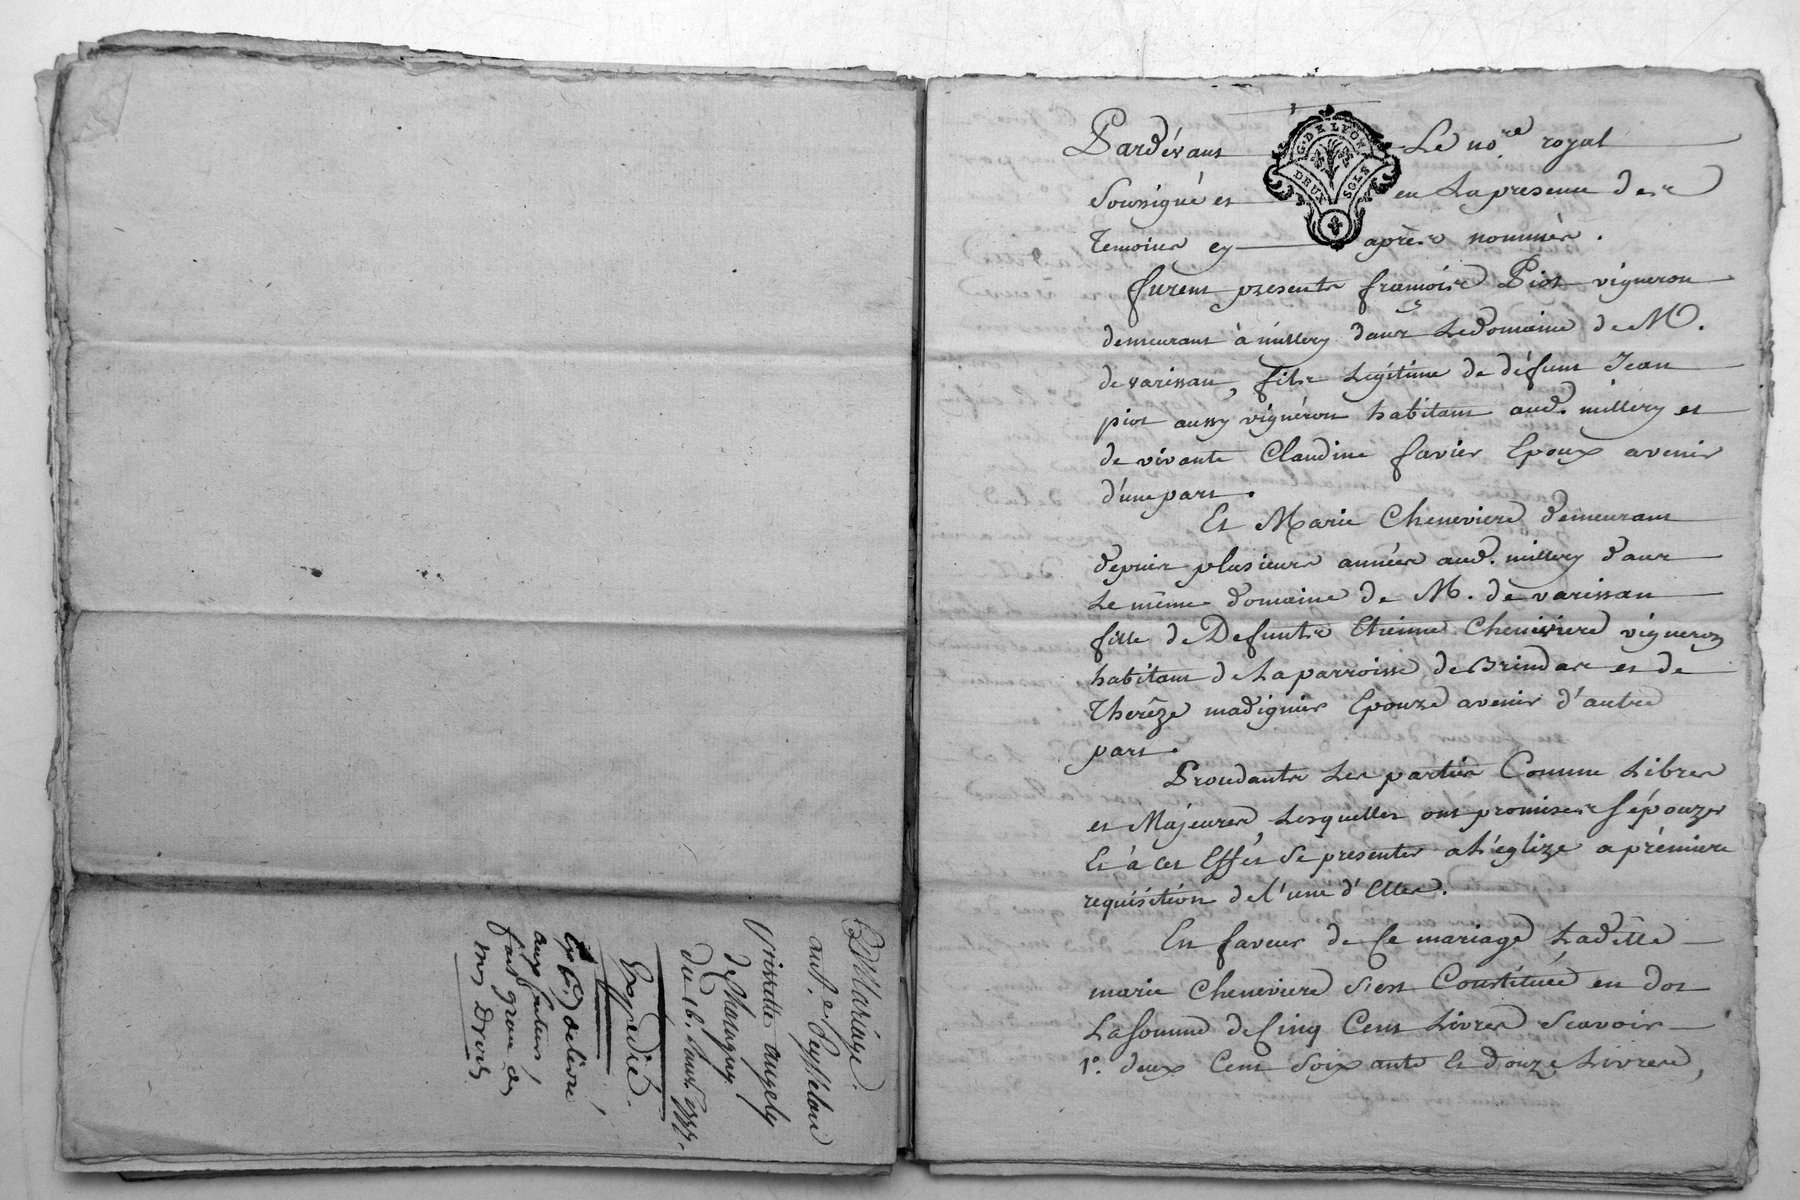 Mariage.
ant.e Peysselon
grisette angely
de Charagny
du 16. aoust 1777.
Expedié.
délivré
aux futeurs,
fait grosse de
mes Droits
G. DE LYON
DEUX SOLS
Pardévant Le no.re royal
Soussigné et en La presence des
Temoins cy après nommés.
furent presents françois Piot vigneron
demeurant à millery dans Le domaine de M.
de varissan, fils Legitime de défunt Jean
piot aussy vignéron habitant aud. millery et
de vivante Claudine favier Epoux avenir
d'une part.
Et Marie Cheneviere demeurant
depuis plusieurs années aud. millery dans
Le même domaine de M. de varissan
fille de Defunts Etienne Cheneviere vigneron
habitant de La parroisse de Brindas et de
Therêze madignier Epouze avenir d'autre
part.
Proceddants Les parties Comme Libres
et Májeures, Lesquelles ont promises s'épouzer
Et à cet Effét Se presenter a L'églize a prémiere
requisition de l'une d'Elles.
En faveur de Ce mariage Ladétte
marie Cheneviere s'est Constituée en dot
La somme de Cinq Cent Livres Scavoir
1°. deux Cent Soixante Et douze Livres,